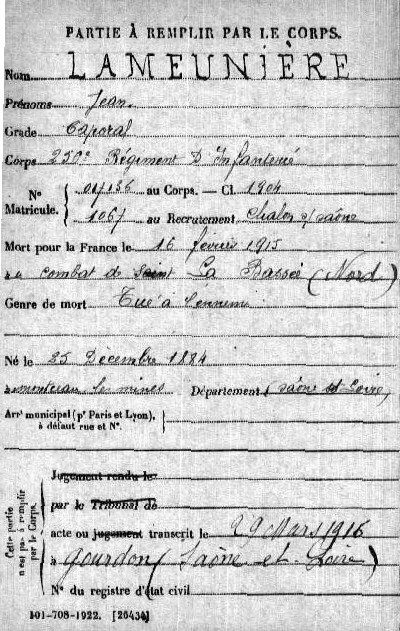 PARTIE À REMPLIR PAR LE CORPS.
Nom LAMEUNIÈRE
Prénoms Jean
Grade Caporal
Corps 250e Régiment D'Infanterie
Nº Matricule. { 017156 au Corps. — Cl. 1904
1067 au Recrutement Chalon s/ Saône
Mort pour la France le 16 février 1915
au combat de La Bassée (Nord)
Genre de mort Tué à l'ennemi
Né le 25 Décembre 1884
à montceau les mines Département Saône et Loire,
Arrt municipal (pr Paris et Lyon), à défaut rue et Nº.
Cette partie n'est pas à remplir par le Corps.
Jugement rendu le
par le Tribunal de
acte ou jugement transcrit le 29 Mars 1916
à Gourdon (Saône et Loire)
Nº du registre d'état civil
101-708-1922. [26434]